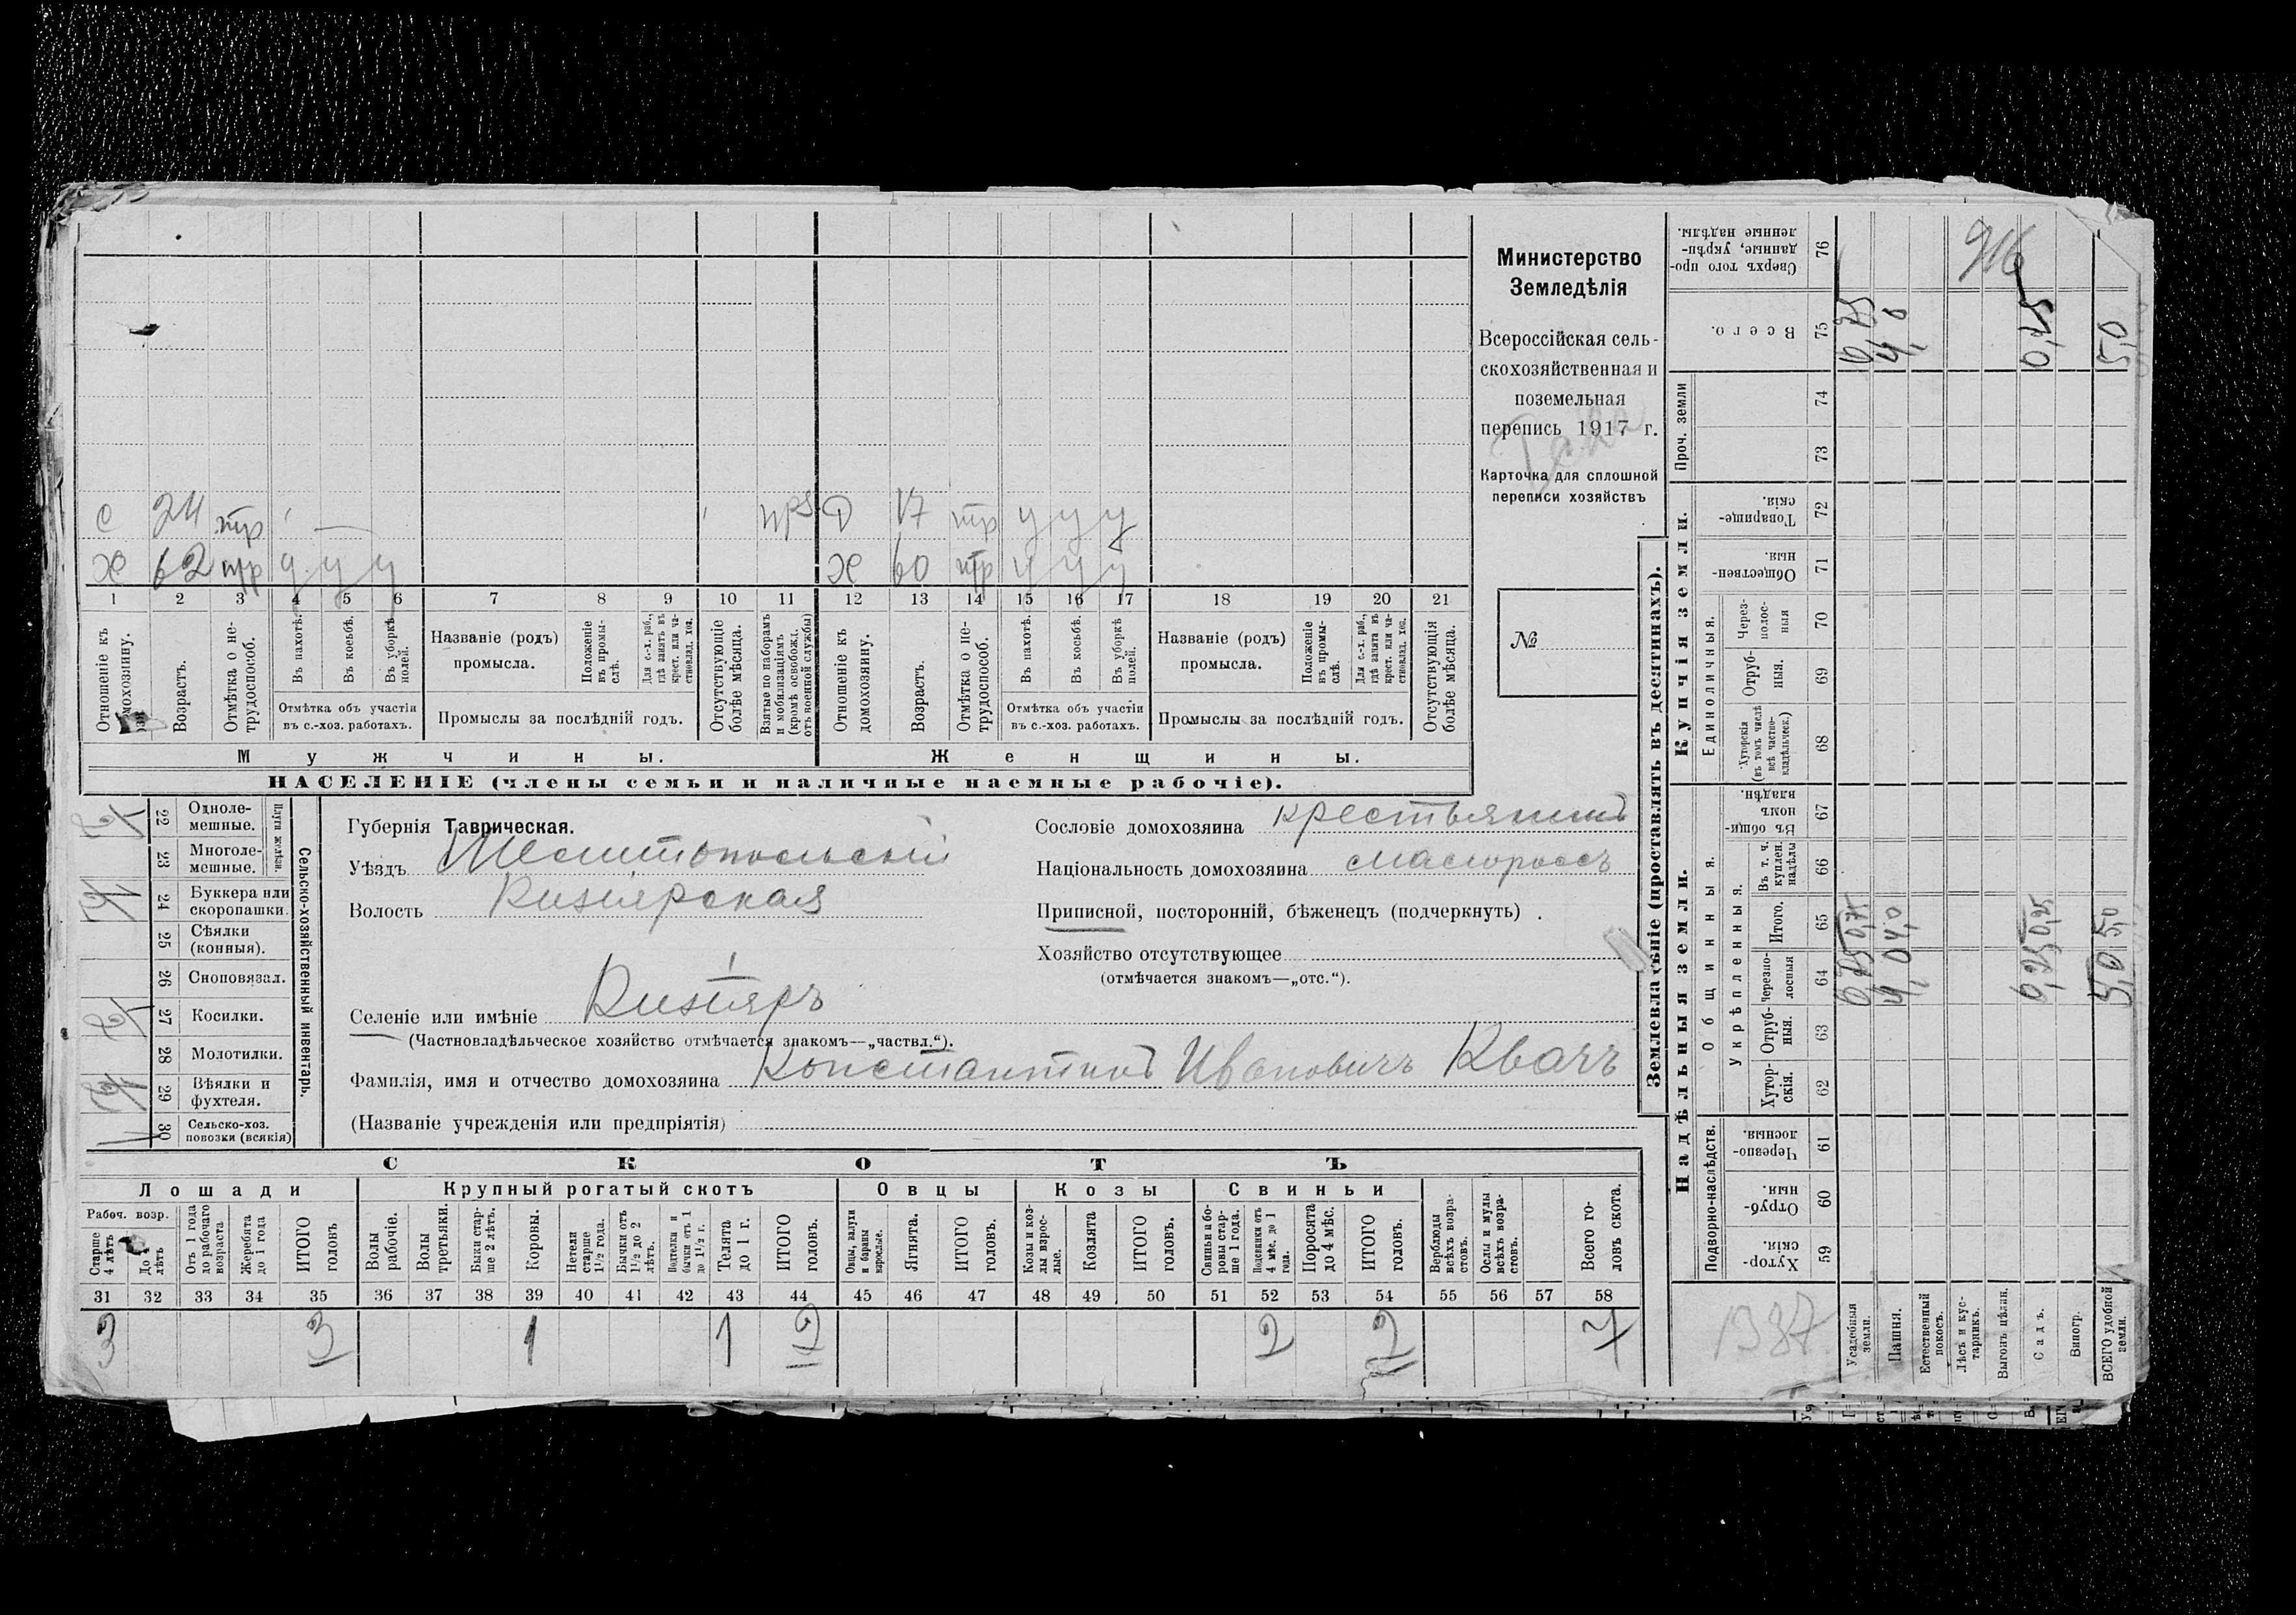 Министерство
Земледѣлія
Всероссійская сель-
скохозяйственная и
поземельная
перепись 1917 г.
Карточка для сплошной
переписи хозяйствъ
№
С 24 тр
Х 62 тр у у у
Д 17 тр у у у
Х 60 тр у у у
1 2 3 4 5 6 7 8 9 10 11 12 13 14 15 16 17 18 19 20 21
Отношеніе къ домохозяину.
Возрастъ.
Отмѣтка о не-
трудоспособ.
Въ пахотѣ.
Въ косьбѣ.
Въ уборкѣ
полей.
Отмѣтка объ участіи
въ с.-хоз. работахъ.
Названіе (родъ)
промысла.
Положеніе
въ промы-
слѣ.
Для с.-х. раб.,
гдѣ занятъ въ
крест. или ча-
стновлад. хоз.
Промыслы за послѣдній годъ.
Отсутствующіе
болѣе мѣсяца.
Взятые по наборамъ
и мобилизаціямъ
(кромѣ освобожд.
отъ военной службы)
Отношеніе къ
домохозяину.
Возрастъ.
Отмѣтка о не-
трудоспособ.
Въ пахотѣ.
Въ косьбѣ.
Въ уборкѣ
полей.
Отмѣтка объ участіи
въ с.-хоз. работахъ.
Названіе (родъ)
промысла.
Положеніе
въ промы-
слѣ.
Для с.-х. раб.,
гдѣ занята въ
крест. или ча-
стновлад. хоз.
Промыслы за послѣдній годъ.
Отсутствующія
болѣе мѣсяца.
Мужчины.
Женщины.
НАСЕЛЕНІЕ (члены семьи и наличные наемные рабочіе).
22 Одноле-
мешные.
23 Многоле-
мешные.
Плуги желѣзн.
24 Буккера или
скоропашки.
25 Сѣялки
(конныя).
26 Сноповязал.
27 Косилки.
28 Молотилки.
29 Вѣялки и
фухтеля.
30 Сельско-хоз.
повозки (всякія)
Сельско-хозяйственный инвентарь.
Губернія Таврическая.
Уѣздъ Мелитопольскій
Волость Кизіярская
Селеніе или имѣніе Кизіяръ
(Частновладѣльческое хозяйство отмѣчается знакомъ—„частвл.“).
Фамилія, имя и отчество домохозяина Константинъ Ивановичъ Квачъ
(Названіе учрежденія или предпріятія)
Сословіе домохозяина крестьянинъ
Національность домохозяина малороссъ
Приписной, посторонній, бѣженецъ (подчеркнуть).
Хозяйство отсутствующее
(отмѣчается знакомъ—„отс.“).
СКОТЪ
Лошади
Крупный рогатый скотъ
Овцы
Козы
Свиньи
Рабоч. возр.
Старше
4 лѣтъ
До 4
лѣтъ
Отъ 1 года
до рабочаго
возраста
Жеребята
до 1 года
ИТОГО
головъ
Волы
рабочіе.
Волы
третьяки.
Быки стар-
ше 2 лѣтъ.
Коровы.
Нетели
старше
1½ года.
Бычки отъ
1½ до 2
лѣтъ.
Подтелки и
бычки отъ 1
до 1½ г.
Телята
до 1 г.
ИТОГО
головъ.
Овцы, валухи
и бараны
взрослые.
Ягнята.
ИТОГО
головъ.
Козы и коз-
лы взрос-
лые.
Козлята
ИТОГО
головъ.
Свиньи и бо-
ровы стар-
ше 1 года.
Подсвинки отъ
4 мѣс. до 1
года.
Поросята
до 4 мѣс.
ИТОГО
головъ.
Верблюды
всѣхъ возра-
стовъ.
Ослы и мулы
всѣхъ возра-
стовъ.
Всего го-
ловъ скота.
31 32 33 34 35 36 37 38 39 40 41 42 43 44 45 46 47 48 49 50 51 52 53 54 55 56 57 58
3 3 1 1 2 2 2 7
Землевладѣніе (проставлять въ десятинахъ).
Надѣльныя земли.
Купчія земли.
Проч. земли
Подворно-наслѣдств.
Общинныя.
Укрѣпленныя.
Единоличныя.
Сверхъ того про-
данные, укрѣп-
ленные надѣлы.
76
Всего.
75
74
73
Товарище-
скія.
72
Обществен-
ныя.
71
Через-
полос-
ныя
70
Отруб-
ныя.
69
Хуторскія
(въ томъ числѣ
всѣ частно-
владѣльческ.)
68
Въ общин-
номъ
владѣн.
67
Въ т. ч.
куплен.
надѣлы
66
Итого.
65
Черезпо-
лосныя
64
Отруб-
ныя.
63
Хутор-
скія.
62
Черезпо-
лосныя.
61
Отруб-
ныя.
60
Хутор-
скія
59
Усадебныя
земли.
0,75 0,75 0,75
Пашня.
4,0 4,0 4,0
Естественный
покосъ.
Лѣсъ и кус-
тарникъ.
Выгонъ цѣлин.
Садъ.
0,25 0,25 0,25
Виногр.
ВСЕГО удобной
земли.
5,0 5,0 5,0
916
1387